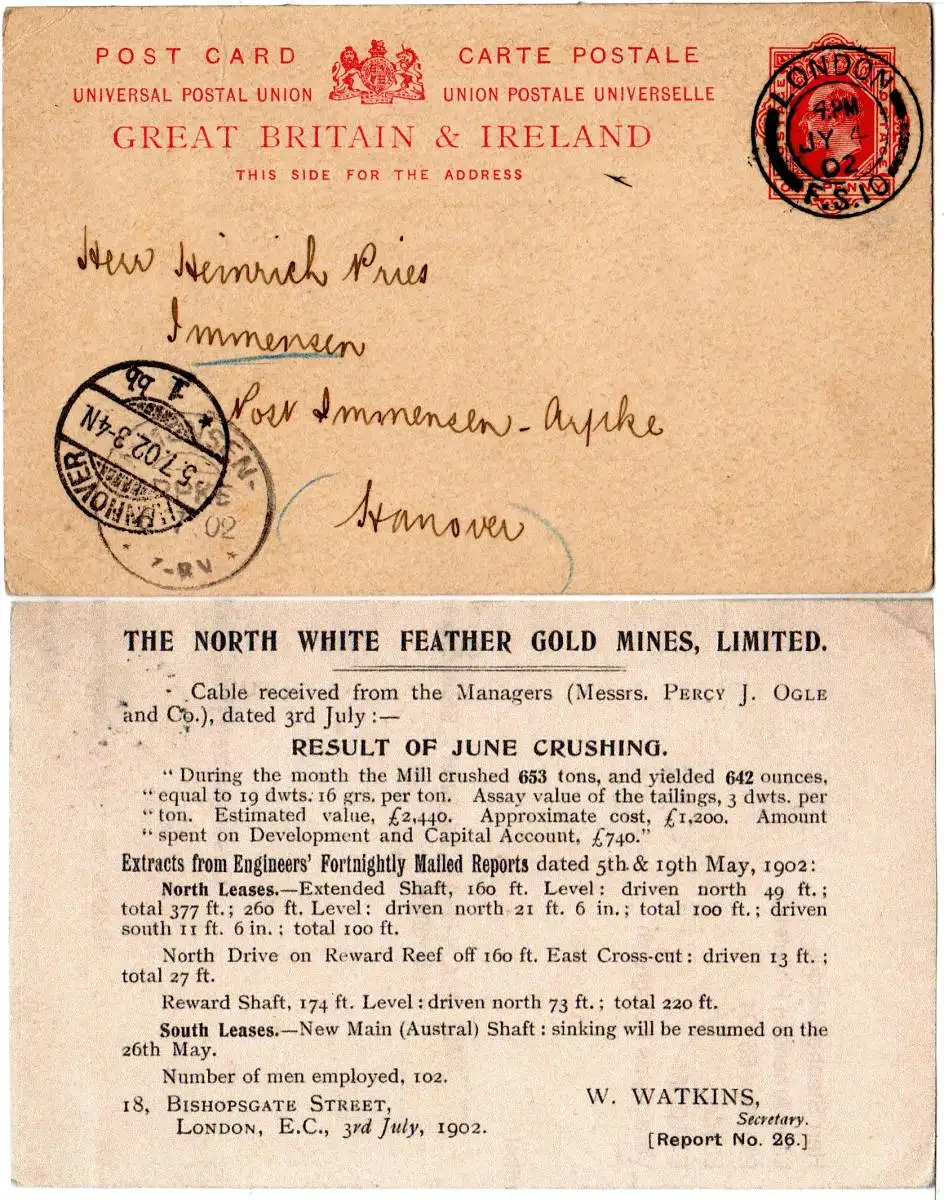 POST CARD CARTE POSTALE
UNIVERSAL POSTAL UNION UNION POSTALE UNIVERSELLE
GREAT BRITAIN & IRELAND
THIS SIDE FOR THE ADDRESS
LONDON
4.PM
JY 4
02
F.S.10
Herr Heinrich Pries
Immensen
Post Immensen - Arpke
Hanover
HANNOVER
5.7.02.3-4N
* 1. bb
SEN-
02
THE NORTH WHITE FEATHER GOLD MINES, LIMITED.
Cable received from the Managers (Messrs. PERCY J. OGLE
and Co.), dated 3rd July :—
RESULT OF JUNE CRUSHING.
“ During the month the Mill crushed 653 tons, and yielded 642 ounces,
“ equal to 19 dwts. 16 grs. per ton. Assay value of the tailings, 3 dwts. per
“ ton. Estimated value, £2,440. Approximate cost, £1,200. Amount
“ spent on Development and Capital Account, £740.”
Extracts from Engineers’ Fortnightly Mailed Reports dated 5th & 19th May, 1902:
North Leases.—Extended Shaft, 160 ft. Level : driven north 49 ft. ;
total 377 ft. ; 260 ft. Level : driven north 21 ft. 6 in. ; total 100 ft. ; driven
south 11 ft. 6 in. ; total 100 ft.
North Drive on Reward Reef off 160 ft. East Cross-cut : driven 13 ft. ;
total 27 ft.
Reward Shaft, 174 ft. Level : driven north 73 ft. ; total 220 ft.
South Leases.—New Main (Austral) Shaft : sinking will be resumed on the
26th May.
Number of men employed, 102.
18, BISHOPSGATE STREET,
LONDON, E.C., 3rd July, 1902.
W. WATKINS,
Secretary.
[Report No. 26.]